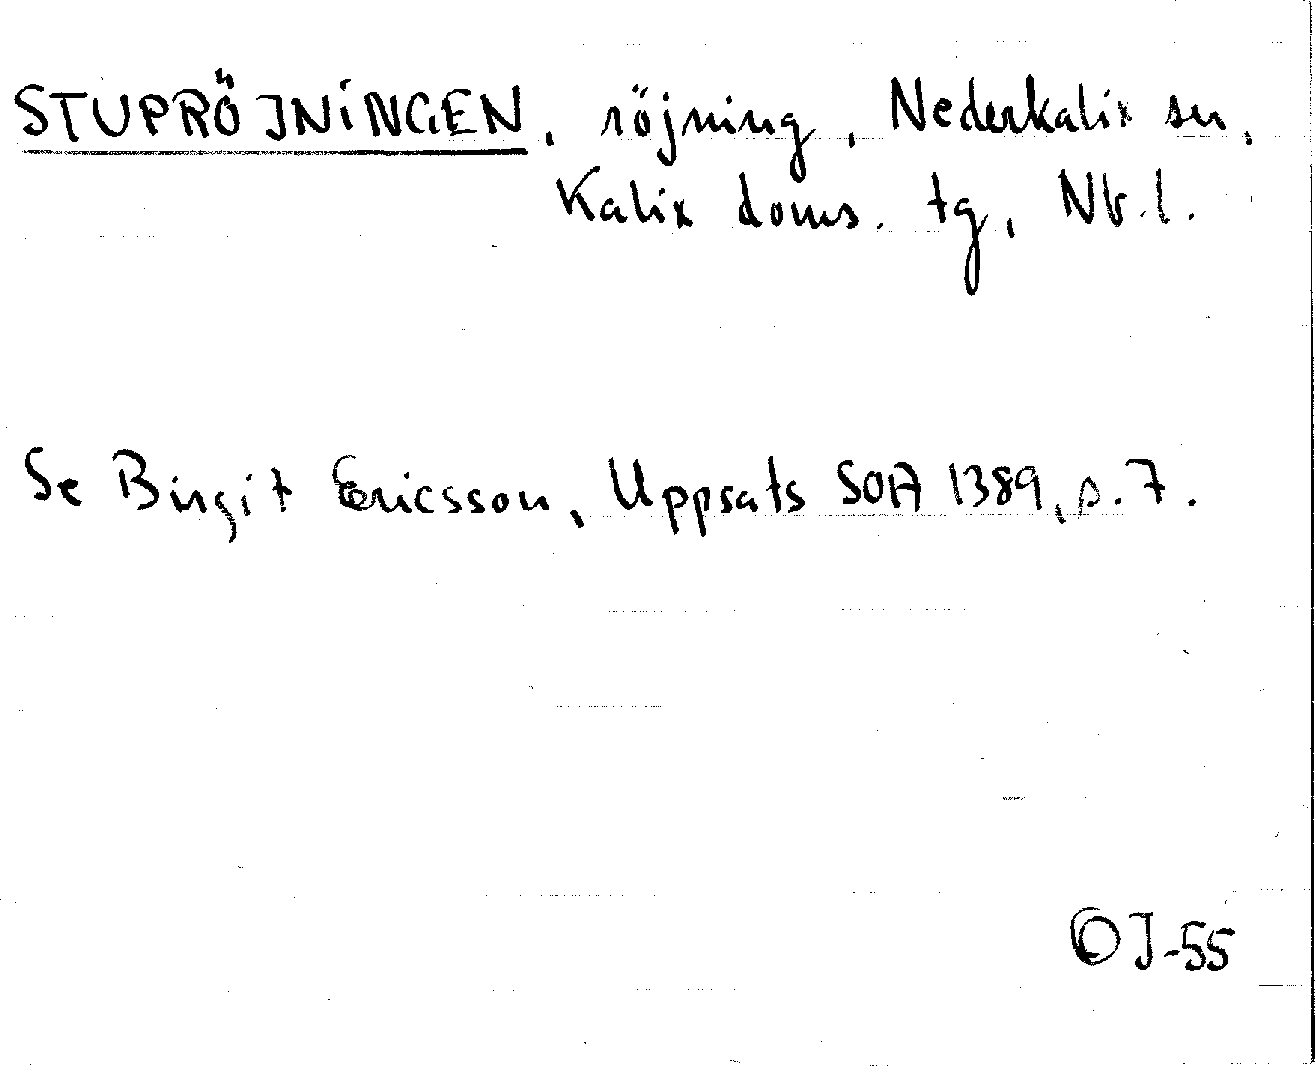 STUPRÖJNINGEN, röjning, Nederkalix sn,
Kalix doms. tg, Nb.l.
Se Birgit Ericsson, Uppsats SOA 1389, s. 7.
OJ-55